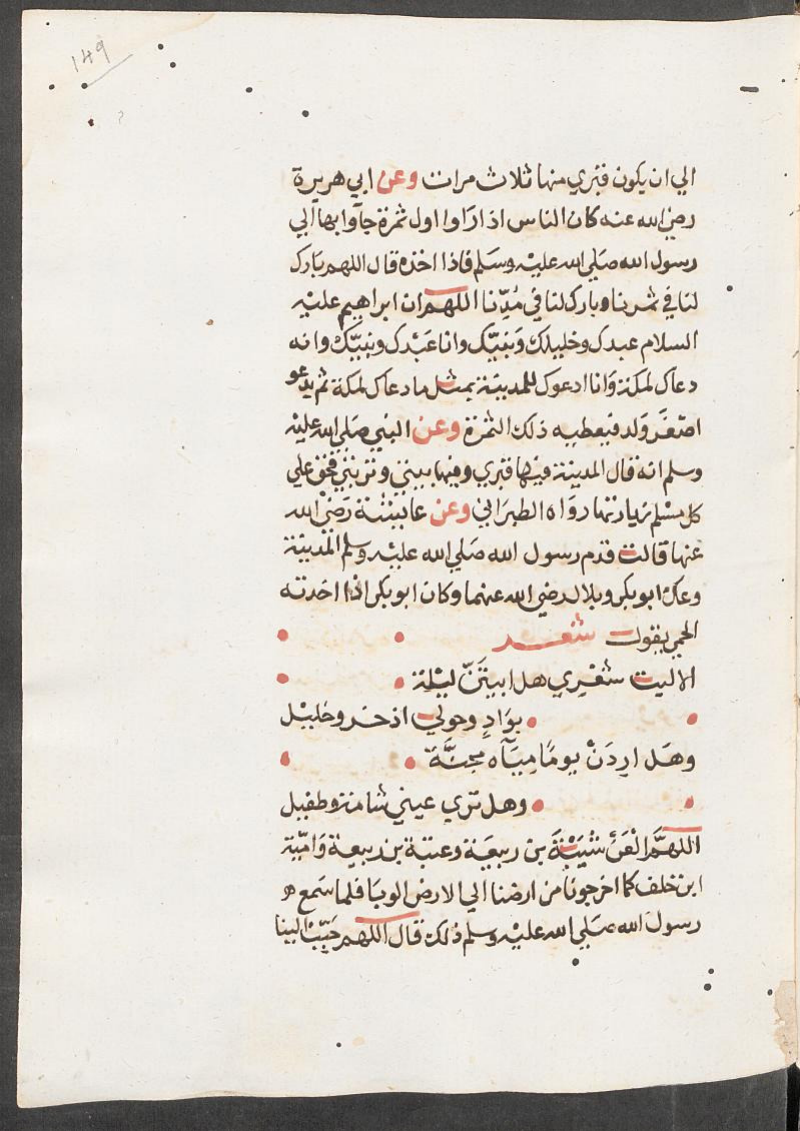 149
الي ان يكون قبري منها ثلاث مرات وعن ابي هريرة
رضي الله عنه كان الناس اذا راوا اول ثمرة جآوا بها الي
رسول الله صَلي الله عليْه وسَلم فاذا اخذه قال اللهم بَارك
لنا في ثمرنا وبارك لنا في مُدِّنا اللهم ان ابراهيم عليْه
السلام عبدك وخليلك وَنبيّك وانا عَبْدك ونبيّك وانه
دعاك لمكة وَانا ادعوك للمدينة بمثل ما دعاك لمكة ثم يدعو
اصْغَر وَلد فيعطيه ذلك الثمرة وعن النبي صَلي الله عليْه
وسلم انه قال المدينة فيها قبري وفيها بيتي وتربتي فحق علي
كل مسْلم زيارتها روَاه الطبرَاني وعن عايشة رَضيْ الله
عنها قالت قدم رسول الله صَلي الله عليْه وسلم المدينة
وعك ابو بكر وبلال رضي الله عنهما وكان ابو بكر اذا اخذته
الحمي يقول شعر
الا ليت شعْري هل ابيتَنّ ليْلة
بوَادٍ وحولي اذخر وخليل
وهَل ارِدَنْ يومًا مِيَآه مجنَّة
وهل تري عيني شامة وطفيل
اللهمَّ الْعَنْ شَيْبَةَ بن ربيعَة وعتبة بن ربيعة وَاميّة
ابن خلف كما اخرجونا من ارضنا الي الارض الوبَا فلما سَمع
رسول الله صَلي الله عليْه وسلم ذلك قال اللهم حَبّبْ الينا